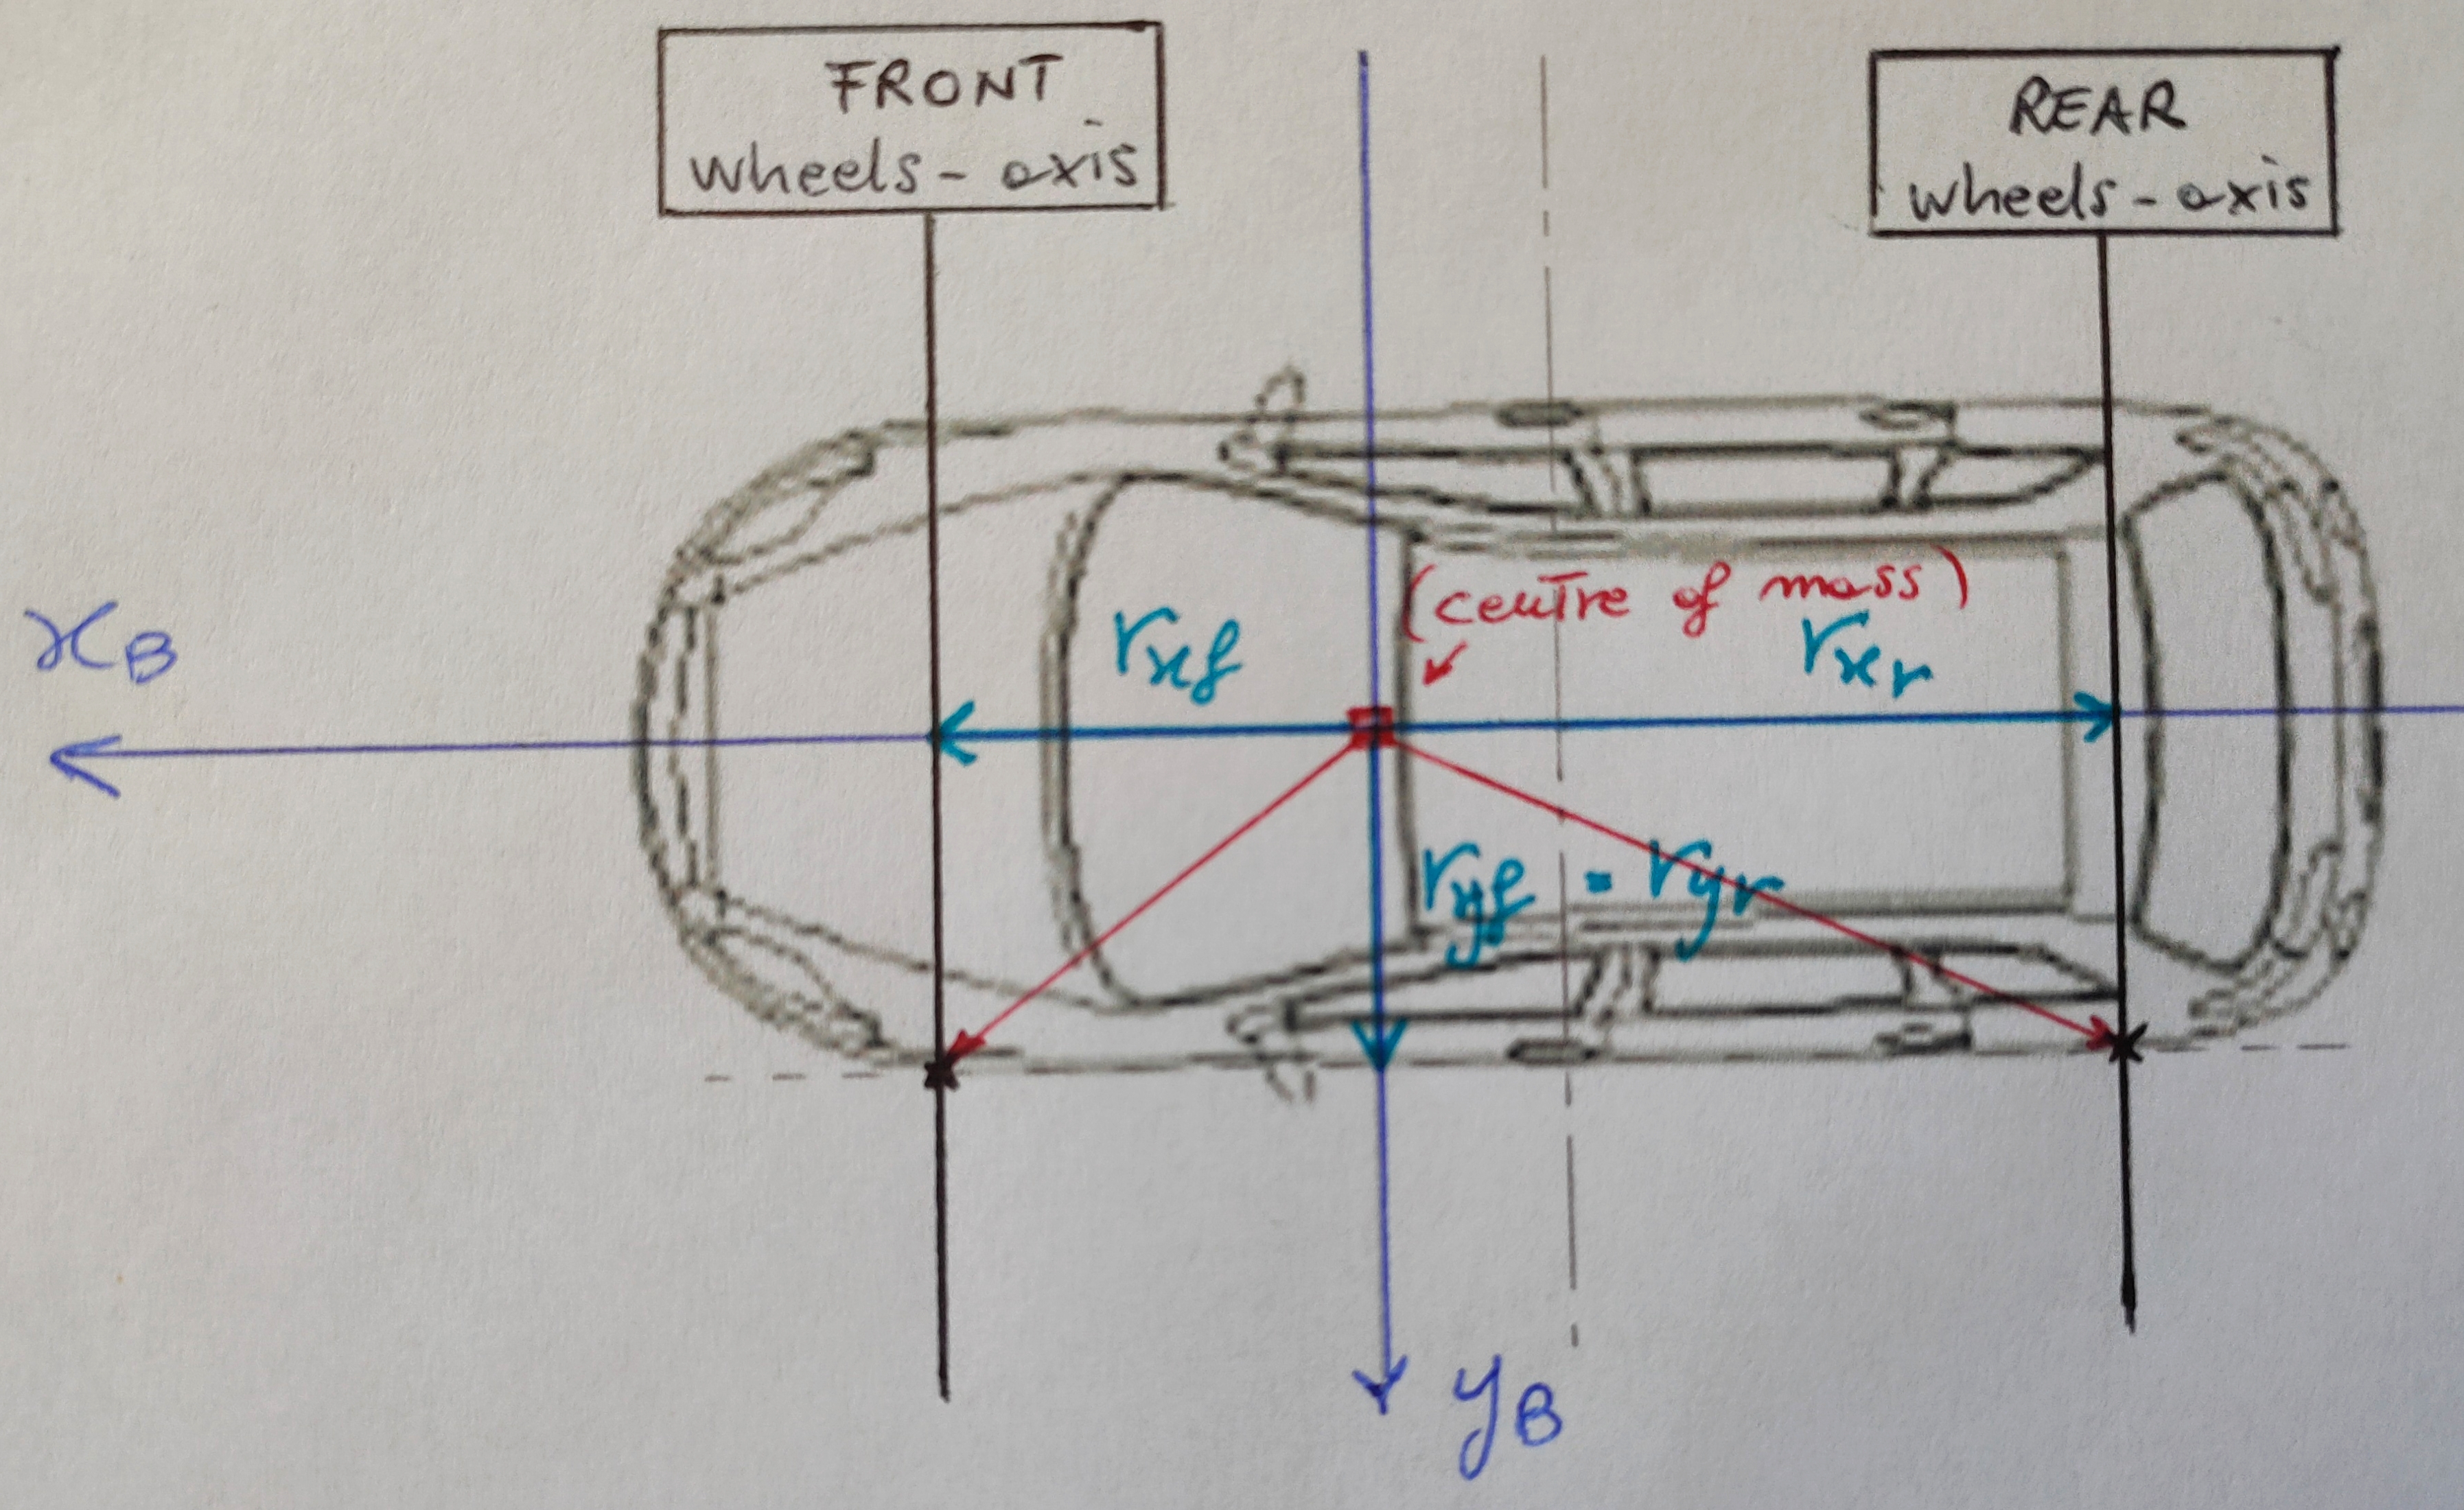 FRONT
wheels - axis
REAR
wheels - axis
(centre of mass)
xB
rxf
rxr
ryf = ryr
yB